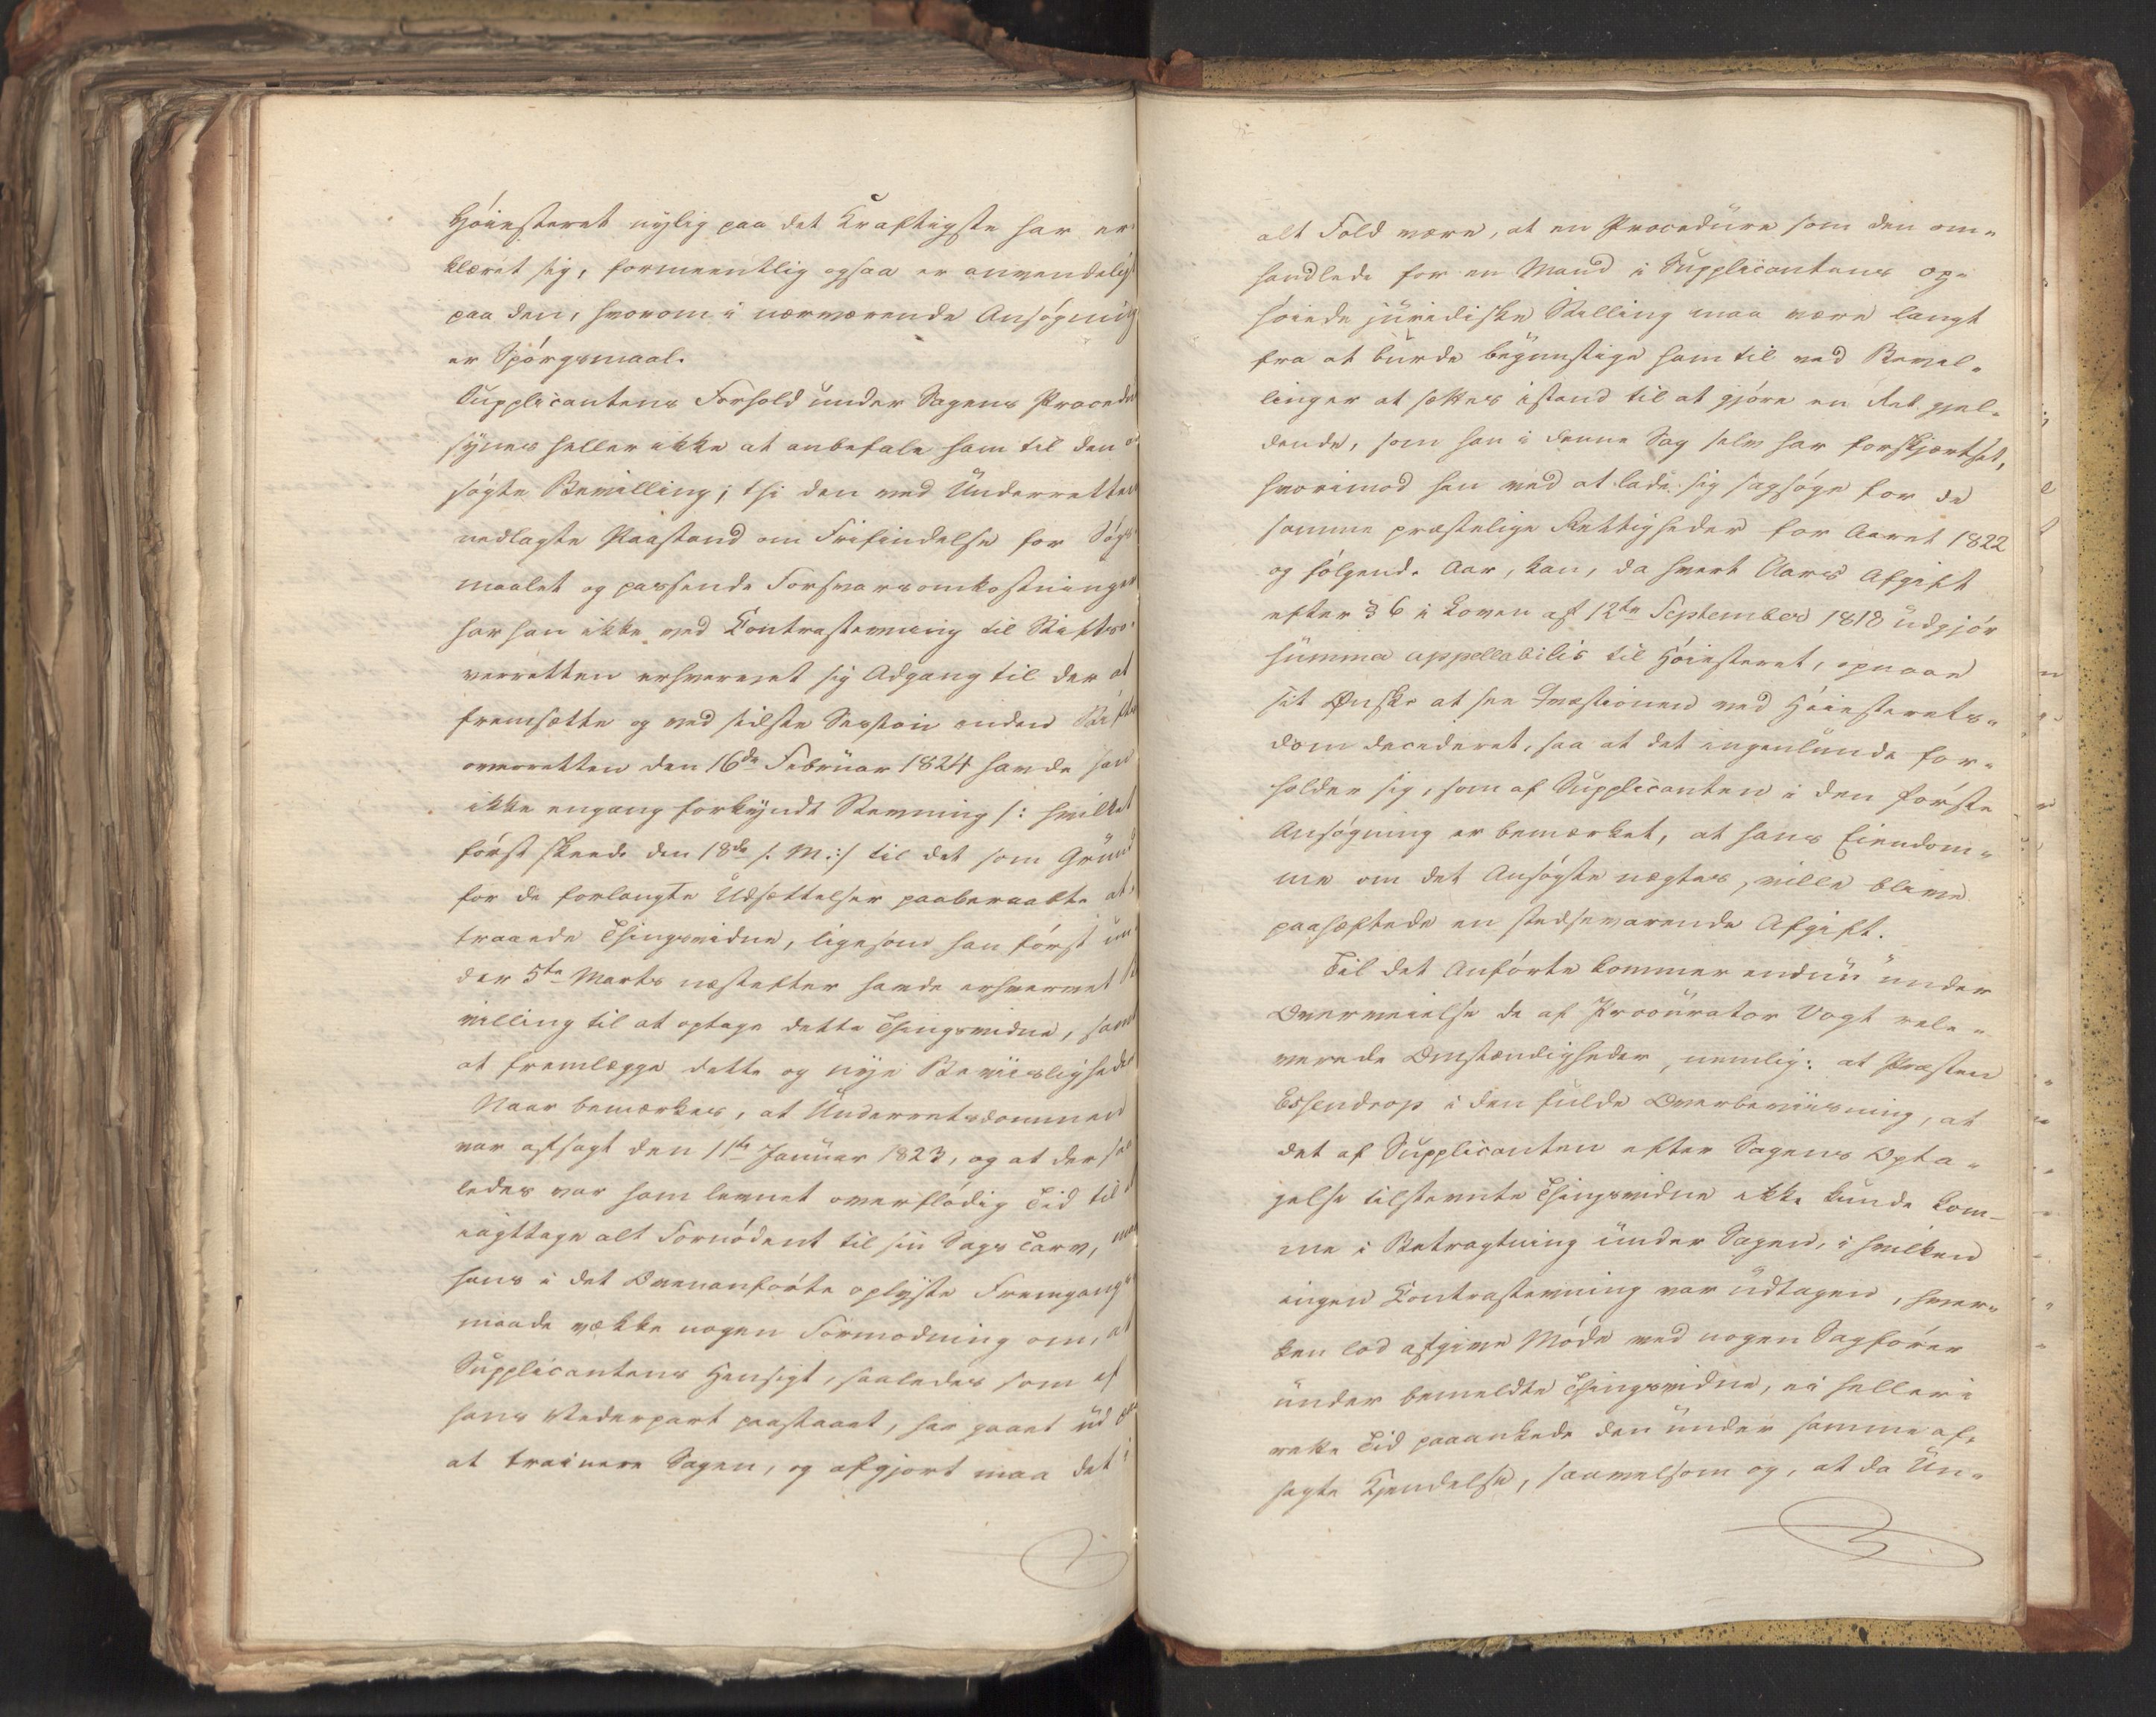 Höiesteret nylig paa det Kraftigste har er-
klæret sig, formeentlig ogsaa er anvendeligt
paa den, hvorom i nærværende Ansögning
er Spörgsmaal.
Supplicantens Forhold under Sagens Procedu
synes heller ikke at anbefale ham til den
sögte Bevilling; thi den ved Underretten
nedlagte Paastand om Frifindelse for Sögs-
maalet og passende Forsvarsomkostninger
har han ikke ved Contrastevning til Stifts-
verretten erhvervet sig Adgang til der at
fremsætte og ved sidste Session inden Stifts
overretten den 16de Februar 1824 havde han
ikke engang forkyndt Stevning /: hvilket
först skeede den 18de s. M. :/ til det som Grund
for de forlangte Udsættelser paaberaabte at-
traaede Thingsvidne, ligesom han först un-
der 5te Marts næstefter havde erhvervet
villing til at optage dette Thingsvidne, samt
at fremlægge dette og nye Beviisligheder
Naar bemærkes, at Underretsdommen
var afsagt den 11te Januar 1823, og at der saa
ledes var ham levnet overflödig Tid til
iagttage alt Fornödent til sin Sags Tarv, maa
hans i det Ovenanförte oplyste Fremgangs
maade vække nogen Formodning om, at
Supplicantens Hensigt, saaledes som af
hans Vederpart paastaaet, har gaaet ud paa
at trainere Sagen, og afgjort maa det i
alt Fald være, at en Procedure som den om-
handlede for en Mand i Supplicantens op-
höiede juridiske Stilling maa være langt
fra at burde begunstige ham til ved Bevil-
linger at sættes istand til at gjöre en Ret gjel-
dende, som han i denne Sag selv har forskjertset,
hvorimod han ved at lade sig sagsöge for de
samme præstelige Rettigheder for Aaret 1822
og fölgende Aar, kan, da hvert Aars Afgift
efter § 6 i Loven af 12te September 1818 udgjör
summa appellabilis til Höiesteret, opnaae
sit Ønske at see Qvæstionen ved Höiesterets-
dom decideret, saa at det ingenlunde for-
holder sig, som af Supplicanten i den förste
Ansögning er bemærket, at hans Eiendom-
me om det Ansögte nægtes, ville blive
paaheftede en stedsevarende Afgift.
Til det Anförte kommer endnu under
Overveielse de af Procurator Vogt rele-
verede Omstændigheder, nemlig: at Præsten
Essendrop i den fulde Overbeviisning, at
det af Supplicanten efter Sagens Opta-
gelse tilstevnte Thingsvidne ikke kunde kom-
me i Betragtning under Sagen, i hvilken
ingen Contrastevning var udtagen, hver-
ken lod afgive Möde ved nogen Sagförer
under bemeldte Thingsvidne, ei heller i
rette Tid paaankede den under samme af-
sagte Kjendelse, saavelsom og, at da Un-